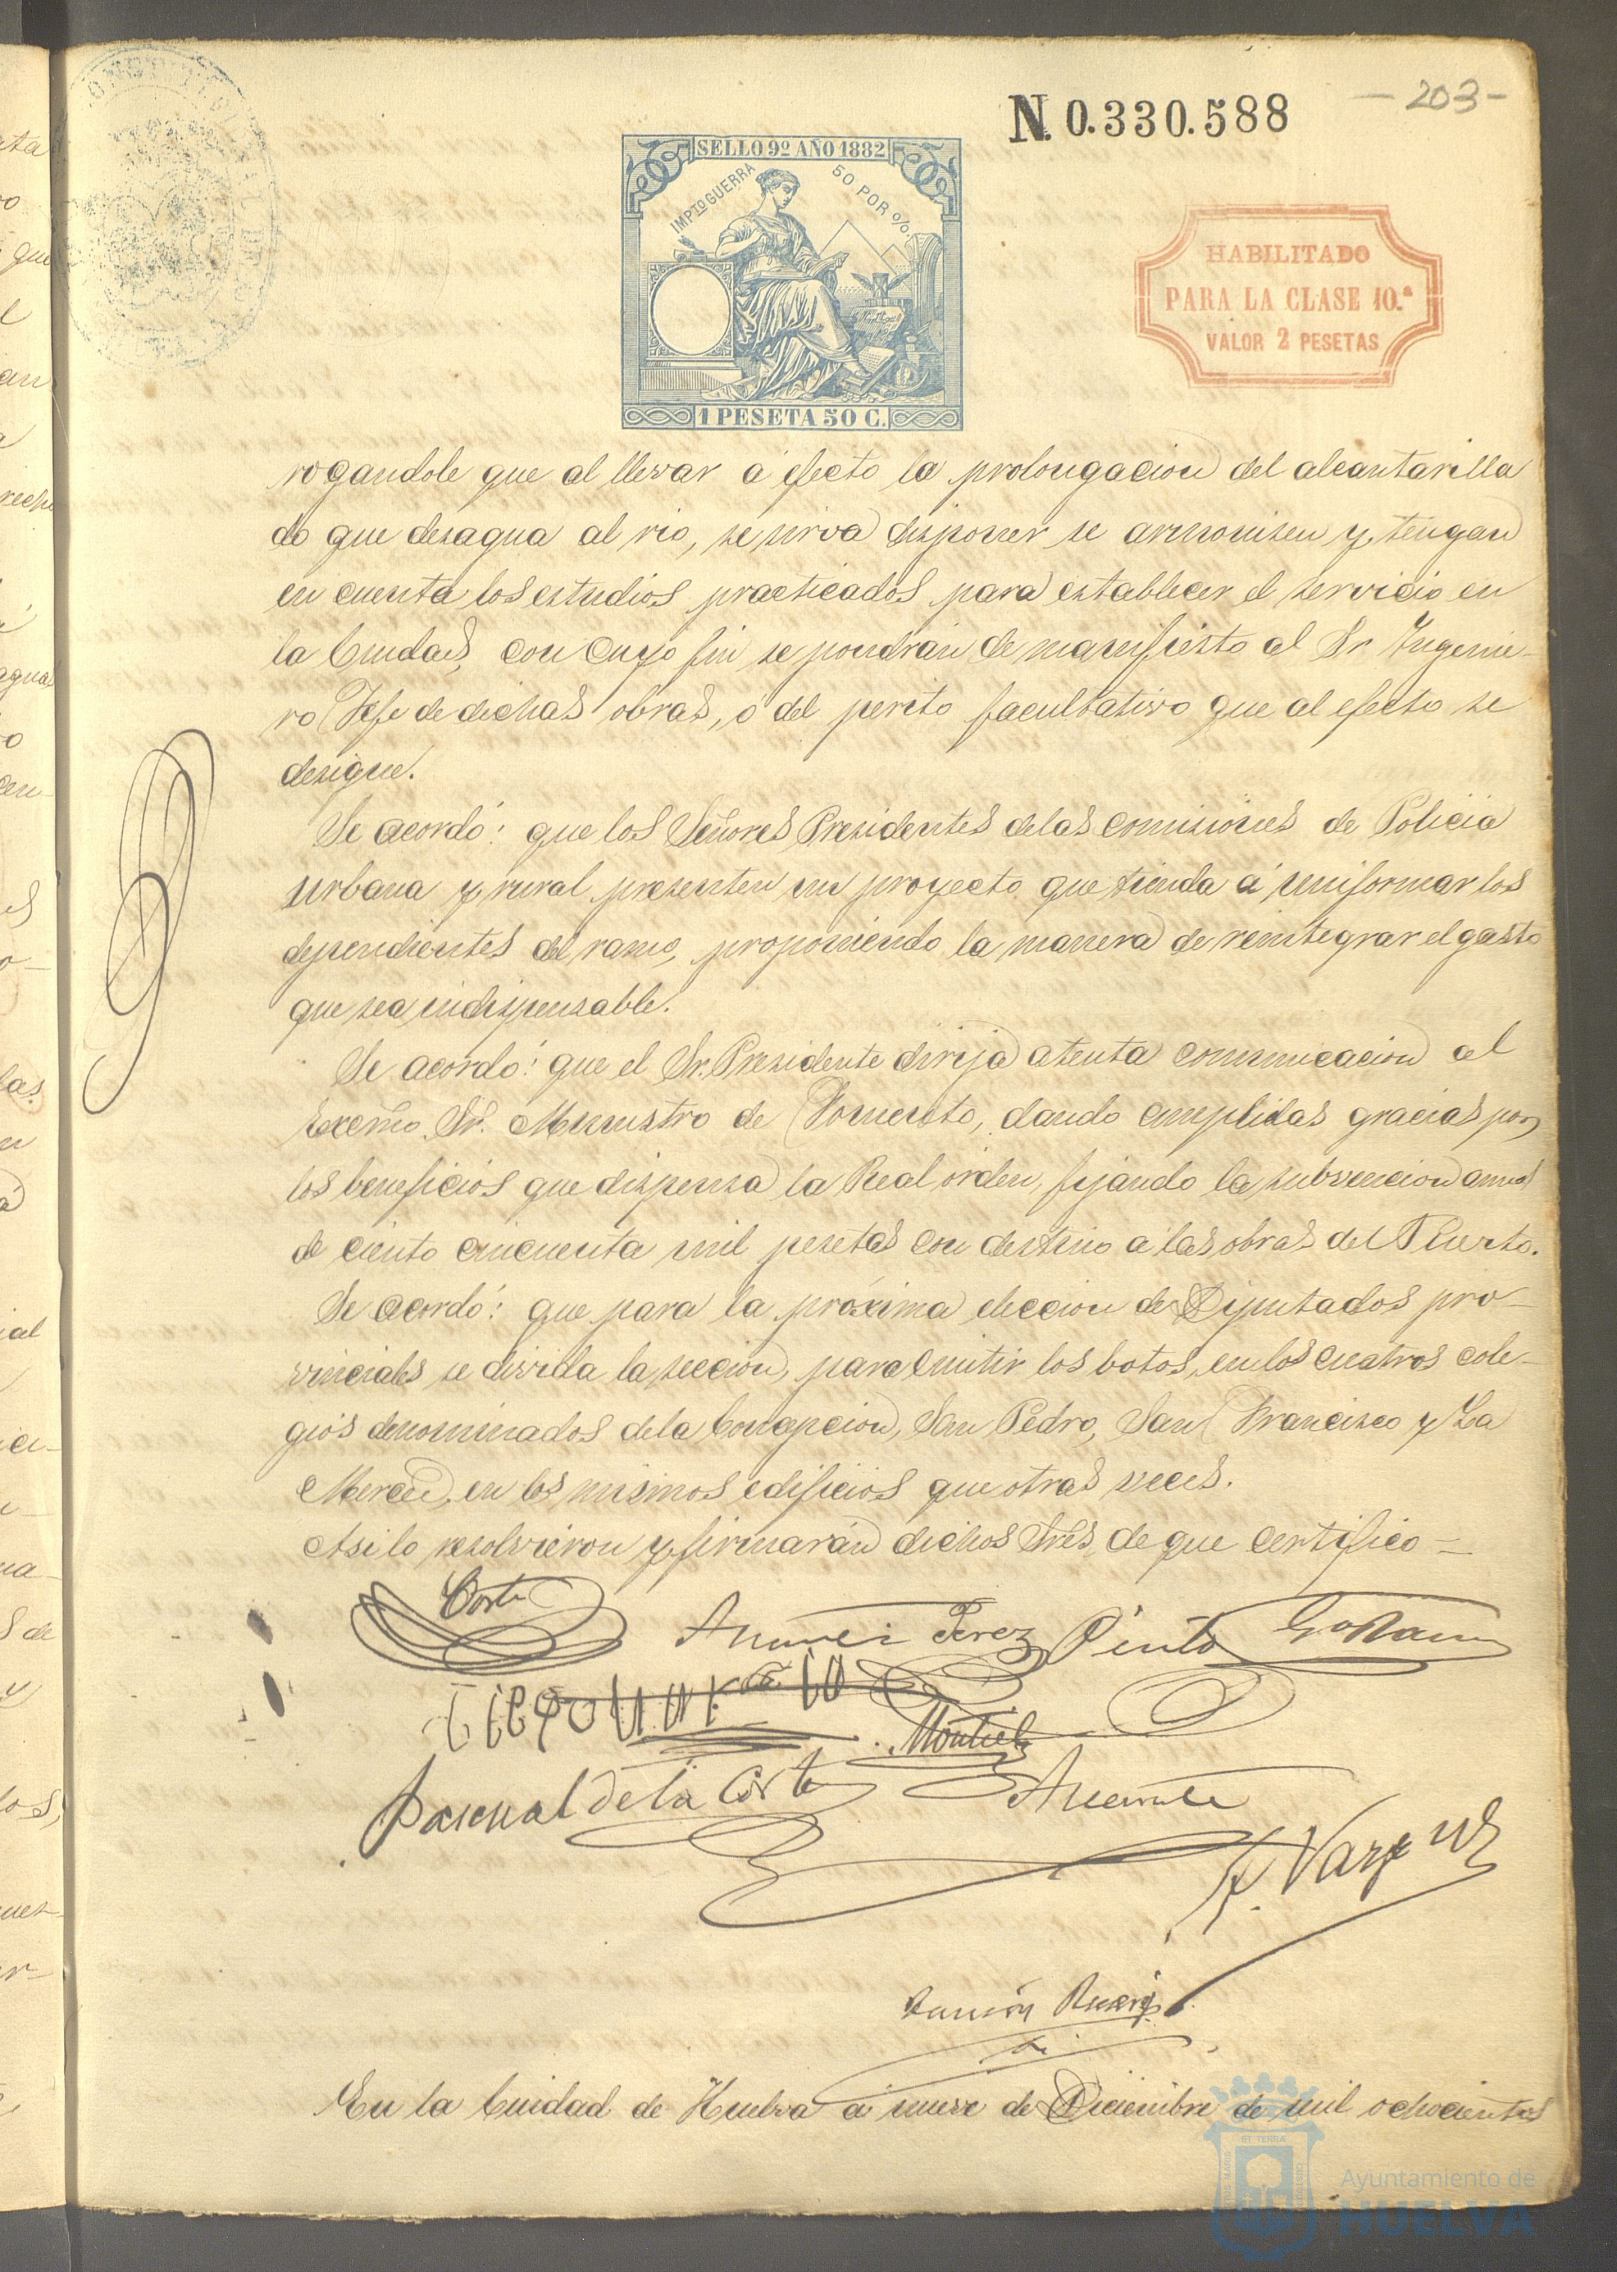 N. 0.330.588
- 203 -
SELLO 9º AÑO 1882
IMPTO GUERRA 50 POR %.
HABILITADO
PARA LA CLASE 10.ª
VALOR 2 PESETAS
1 PESETA 50 C.
rogandole que al llevar á efecto la prolongacion del alcantarilla
do que desagua al rio, se sirva disponer se armonisen y tengan
en cuenta los estudios practicados para establecer el servicio en
la Ciudad, con cuyo fin se pondrán de manifiesto al Sr Ingenie-
ro Jefe de dichas obras, ó del perito facultativo que al efecto se
designe.
Se acordó: que los Señores Presidentes de las comisiones de Policia
urbana y rural presenten un proyecto que tienda á uniformar los
dependientes del ramo, proponiendo la manera de reintegrar el gasto
que sea indispensable.
Se acordó: que el Sr. Presidente dirija atenta comunicacion al
Excmo. Sr. Ministro de Fomento, dando cumplidas gracias por
los beneficios que dispensa la Real orden, fijando la subvencion anual
de ciento cincuenta mil pesetas con destino a las obras del Puerto.
Se acordó: que para la próxima eleccion de Diputados pro-
vinciales se divida la seccion, para emitir los botos, en los cuatros cole-
gios denominados de la Concepcion, San Pedro, San Francisco y La
Merced, en los mismos edificios que otras veces.
Asi lo resolvieron y firmarán dichos Sres, de que certifico —
Corte
Perez Pinto
Montiel
Pascual de la Corte
F. Vazquez
Ramón
En la Ciudad de Huelva á nueve de Diciembre de mil ochocientos
Ayuntamiento de
HUELVA